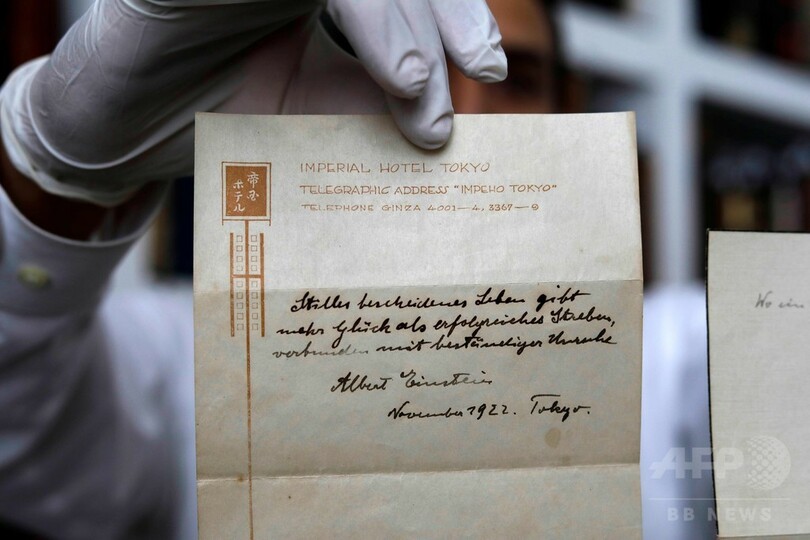 帝国
ホテル
IMPERIAL HOTEL TOKYO
TELEGRAPHIC ADDRESS "IMPEHO TOKYO"
TELEPHONE GINZA 4001—4, 3367—9
Stilles bescheidenes Leben gibt
mehr Glück als erfolgreiches Streben,
verbunden mit beständiger Unruhe
Albert Einstein
November 1922. Tokyo.
Wo ein
AFP
BB NEWS